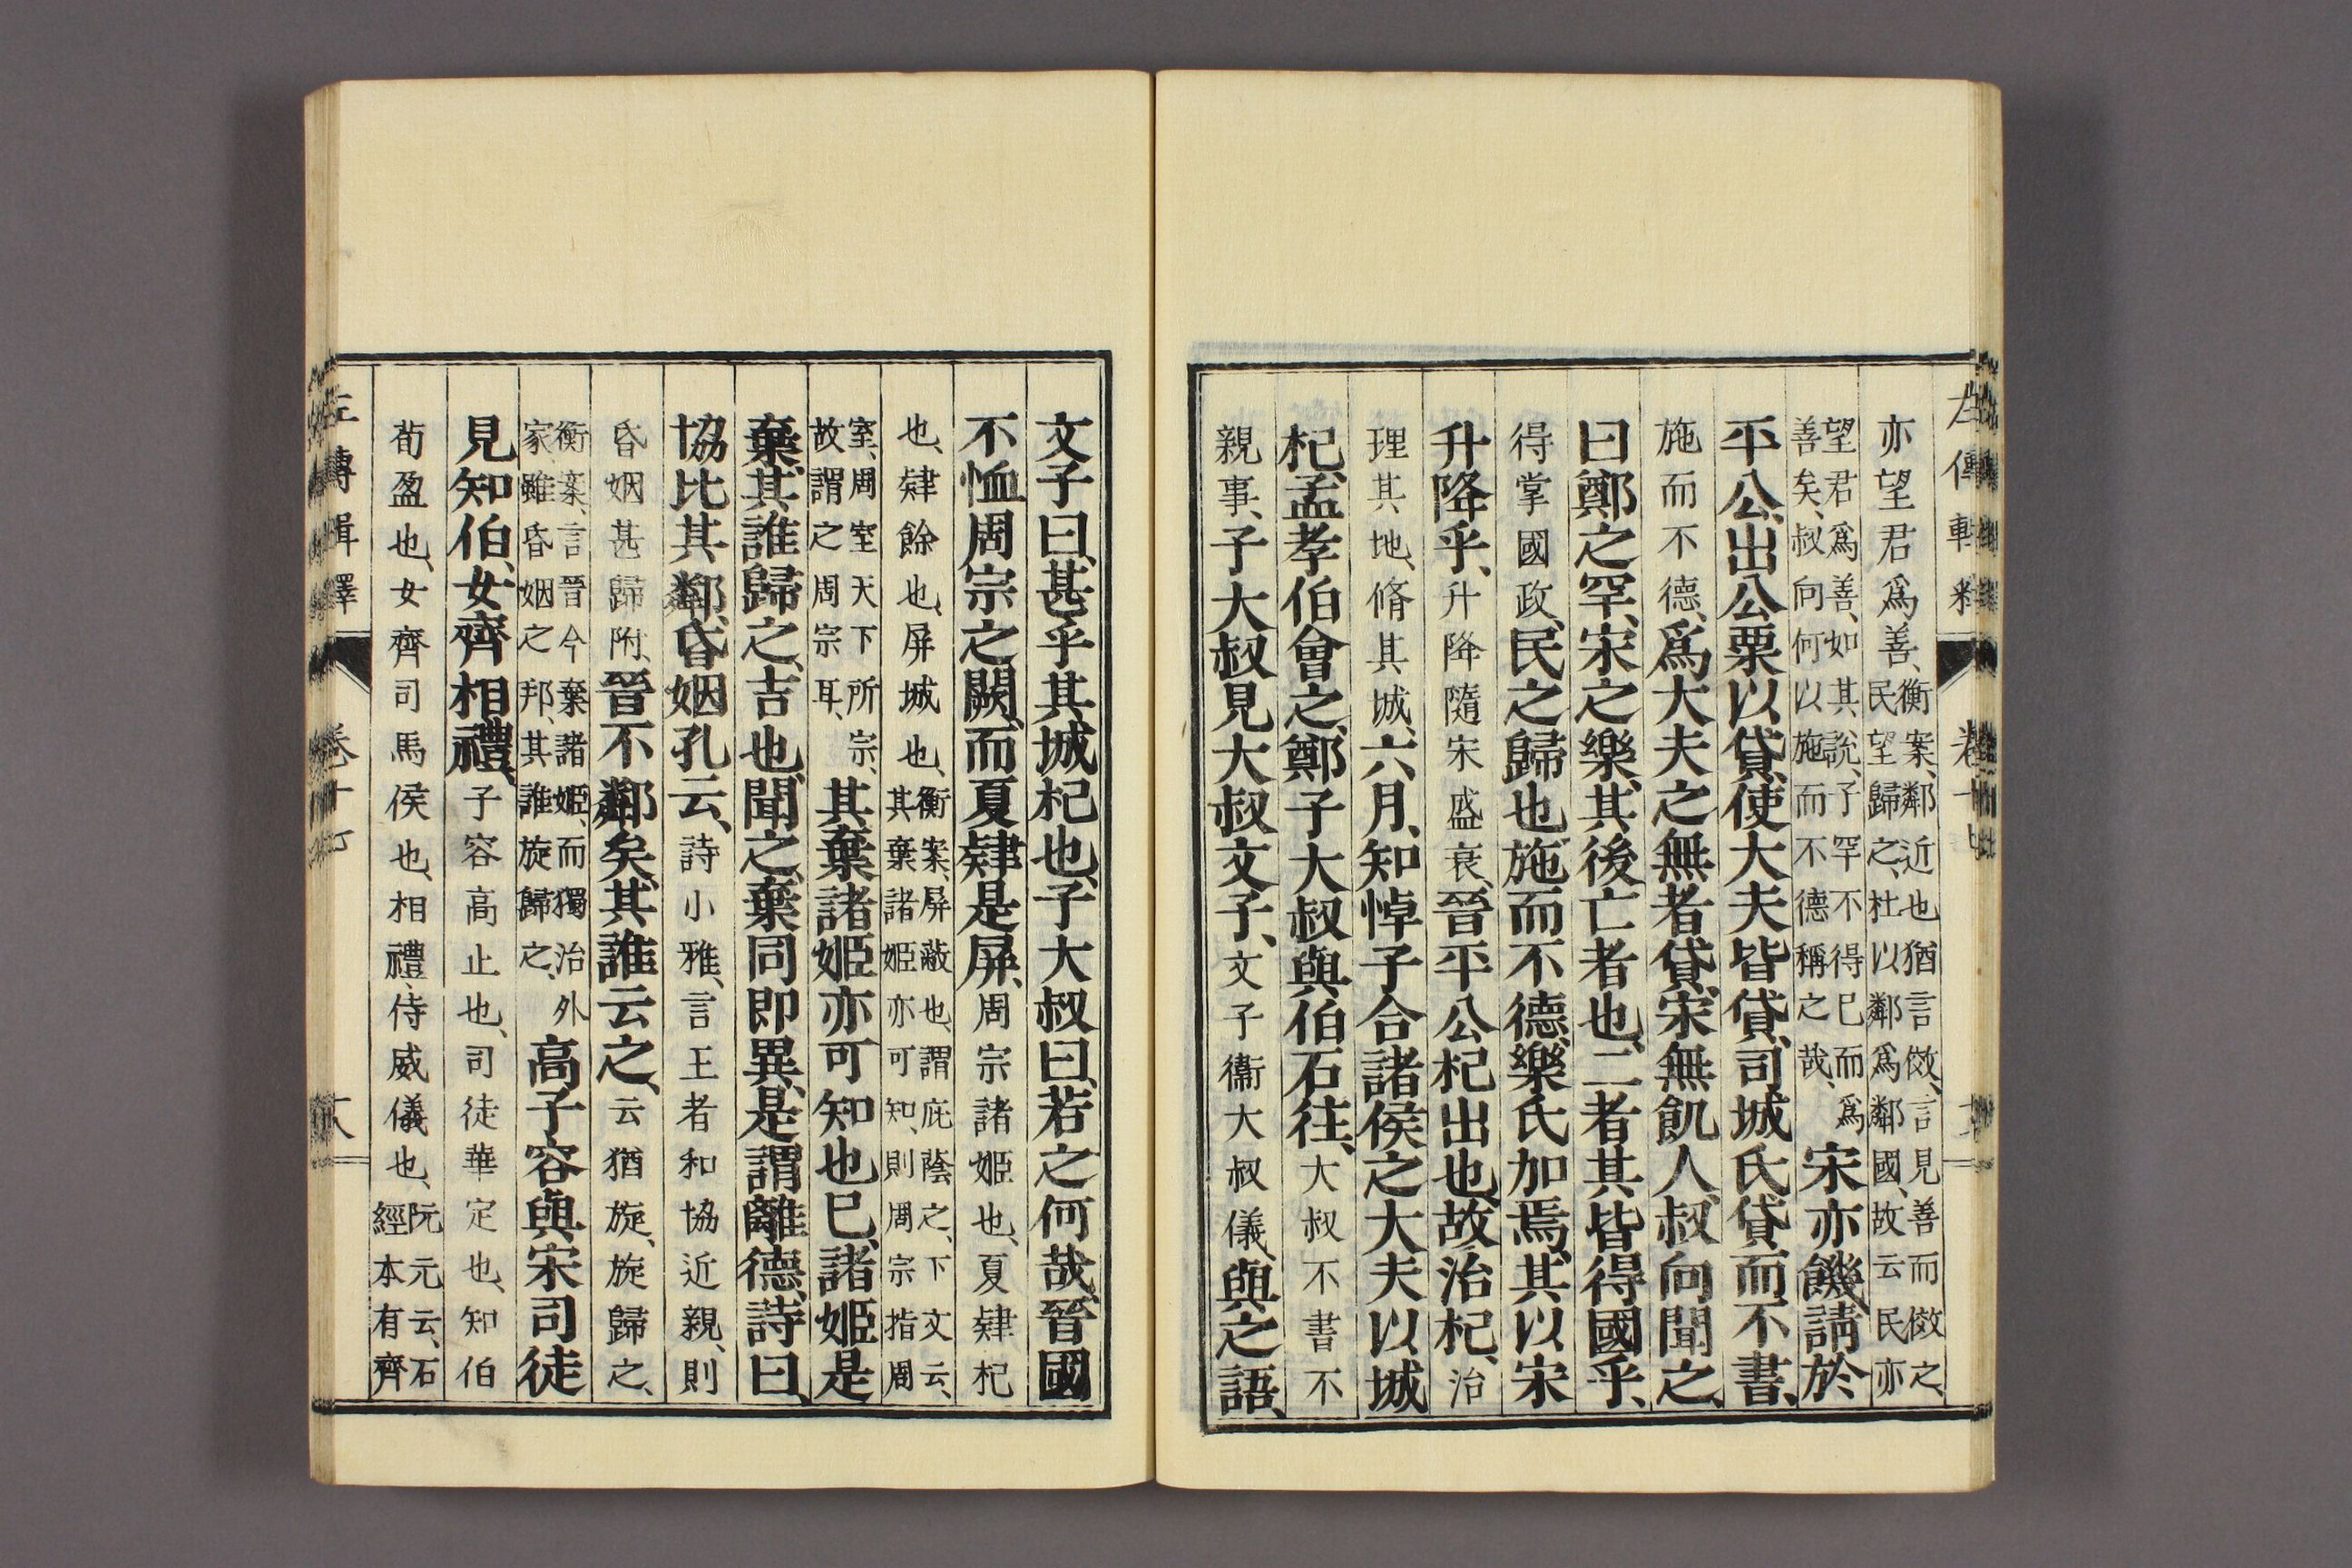 亦望君爲善、衡案、鄰近也猶言傚、言見善而傚之、民望歸之、杜以鄰爲鄰國、故云民亦
望君爲善、如其說、子罕不得已而爲善矣、叔向何以施而不德稱之哉、宋亦饑請於
平公、出公粟以貸、使大夫皆貸、司城氏貸而不書、
施而不德、爲大夫之無者貸、宋無飢人、叔向聞之、
曰鄭之罕、宋之樂、其後亡者也、二者其皆得國乎、
得掌國政、民之歸也、施而不德、樂氏加焉、其以宋
升降乎、升降隨宋盛衰、晉平公杞出也、故治杞、治
理其地、脩其城、六月、知悼子合諸侯之大夫以城
杞、孟孝伯會之、鄭子大叔與伯石往、大叔不書不
親事、子大叔見大叔文子、文子衞大叔儀、與之語、
文子曰、甚乎其城杞也、子大叔曰、若之何哉、晉國
不恤周宗之闕、而夏肄是屏、周宗諸姬也、夏肄杞
也、肄餘也、屏城也、衡案、屏蔽也、謂庇蔭之、下文云、其棄諸姬亦可知、則周宗指周
室、周室天下所宗、故謂之周宗耳、其棄諸姬亦可知也已、諸姬是
棄、其誰歸之、吉也聞之、棄同即異、是謂離德、詩曰、
協比其鄰、昏姻孔云、詩小雅、言王者和協近親、則
昏姻甚歸附、晉不鄰矣、其誰云之、云猶旋、旋歸之、
衡案、言晉今棄諸姬、而獨治外家、雖昏姻之邦、其誰旋歸之、高子容與宋司徒
見知伯、女齊相禮、子容高止也、司徒華定也、知伯
荀盈也、女齊司馬侯也、相禮、侍威儀也、阮元云、石經本有齊
左傳輯釋 卷十七